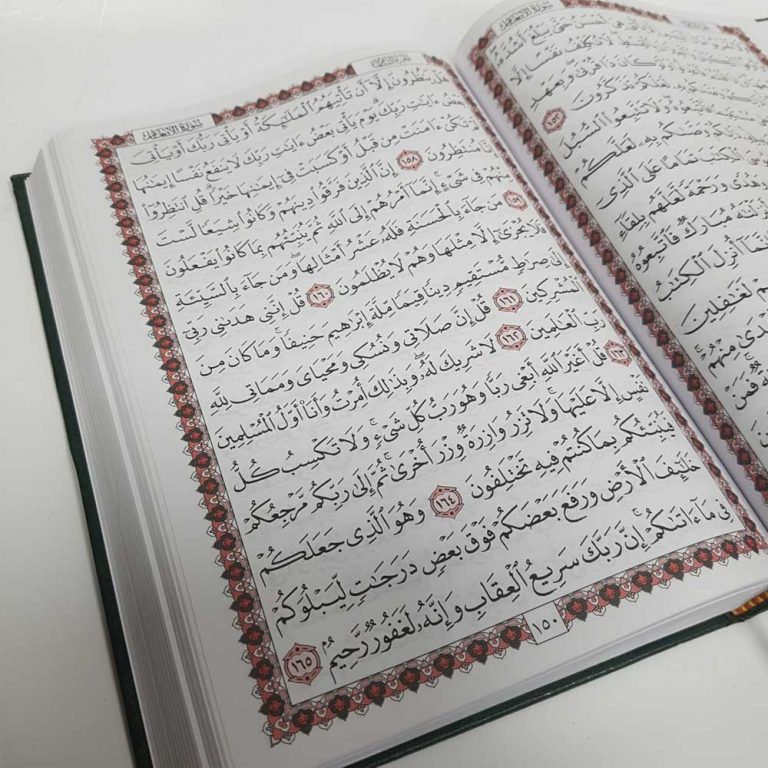 هِىَ أَحْسَنُ حَتَّىٰ يَبْلُغَ أَشُدَّهُۥ
لَا نُكَلِّفُ نَفْسًا إِلَّا
كَانَ ذَا قُرْبَىٰ وَبِعَهْدِ
تَذَكَّرُونَ ١٥٢
وَلَا تَتَّبِعُوا۟ ٱلسُّبُلَ
وَصَّىٰكُم بِهِۦ لَعَلَّكُمْ
تَمَامًا عَلَى ٱلَّذِىٓ
وَرَحْمَةً لَّعَلَّهُم بِلِقَآءِ
مُبَارَكٌ فَٱتَّبِعُوهُ
أُنزِلَ ٱلْكِتَٰبُ
لَغَٰفِلِينَ
مِنْهُمْ
فَمَنْ
سُورَةُ الأَنْعَامِ
هَلْ يَنظُرُونَ إِلَّآ أَن تَأْتِيَهُمُ ٱلْمَلَٰٓئِكَةُ أَوْ يَأْتِىَ رَبُّكَ أَوْ يَأْتِىَ
بَعْضُ ءَايَٰتِ رَبِّكَ يَوْمَ يَأْتِى بَعْضُ ءَايَٰتِ رَبِّكَ لَا يَنفَعُ نَفْسًا إِيمَٰنُهَا
لَمْ تَكُنْ ءَامَنَتْ مِن قَبْلُ أَوْ كَسَبَتْ فِىٓ إِيمَٰنِهَا خَيْرًا قُلِ ٱنتَظِرُوٓا۟
إِنَّا مُنتَظِرُونَ ١٥٨ إِنَّ ٱلَّذِينَ فَرَّقُوا۟ دِينَهُمْ وَكَانُوا۟ شِيَعًا لَّسْتَ
مِنْهُمْ فِى شَىْءٍ إِنَّمَآ أَمْرُهُمْ إِلَى ٱللَّهِ ثُمَّ يُنَبِّئُهُم بِمَا كَانُوا۟ يَفْعَلُونَ
١٥٩ مَن جَآءَ بِٱلْحَسَنَةِ فَلَهُۥ عَشْرُ أَمْثَالِهَا وَمَن جَآءَ بِٱلسَّيِّئَةِ
فَلَا يُجْزَىٰٓ إِلَّا مِثْلَهَا وَهُمْ لَا يُظْلَمُونَ ١٦٠ قُلْ إِنَّنِى هَدَىٰنِى رَبِّىٓ
إِلَىٰ صِرَٰطٍ مُّسْتَقِيمٍ دِينًا قِيَمًا مِّلَّةَ إِبْرَٰهِيمَ حَنِيفًا وَمَا كَانَ مِنَ
ٱلْمُشْرِكِينَ ١٦١ قُلْ إِنَّ صَلَاتِى وَنُسُكِى وَمَحْيَاىَ وَمَمَاتِى لِلَّهِ
رَبِّ ٱلْعَٰلَمِينَ ١٦٢ لَا شَرِيكَ لَهُۥ وَبِذَٰلِكَ أُمِرْتُ وَأَنَا۠ أَوَّلُ ٱلْمُسْلِمِينَ
١٦٣ قُلْ أَغَيْرَ ٱللَّهِ أَبْغِى رَبًّا وَهُوَ رَبُّ كُلِّ شَىْءٍ وَلَا تَكْسِبُ كُلُّ
نَفْسٍ إِلَّا عَلَيْهَا وَلَا تَزِرُ وَازِرَةٌ وِزْرَ أُخْرَىٰ ثُمَّ إِلَىٰ رَبِّكُم مَّرْجِعُكُمْ
فَيُنَبِّئُكُم بِمَا كُنتُمْ فِيهِ تَخْتَلِفُونَ ١٦٤ وَهُوَ ٱلَّذِى جَعَلَكُمْ
خَلَٰٓئِفَ ٱلْأَرْضِ وَرَفَعَ بَعْضَكُمْ فَوْقَ بَعْضٍ دَرَجَٰتٍ لِّيَبْلُوَكُمْ
فِى مَآ ءَاتَىٰكُمْ إِنَّ رَبَّكَ سَرِيعُ ٱلْعِقَابِ وَإِنَّهُۥ لَغَفُورٌ رَّحِيمٌۢ ١٦٥
١٥٠